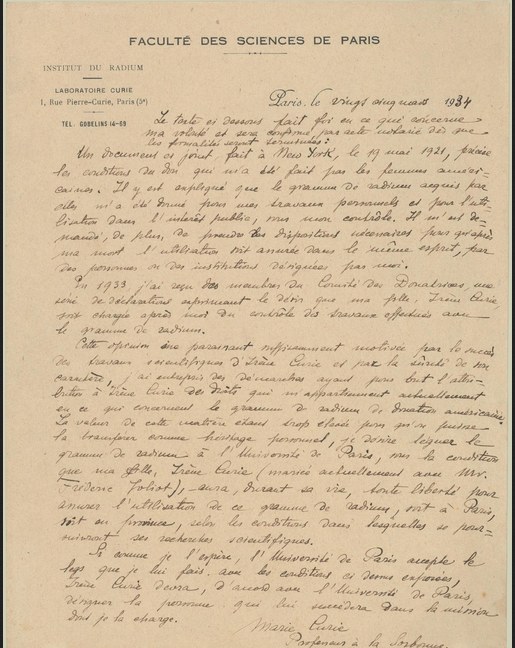 FACULTÉ DES SCIENCES DE PARIS
INSTITUT DU RADIUM
LABORATOIRE CURIE
1, Rue Pierre-Curie, Paris (5e)
TEL. GOBELINS 14-69
Paris, le vingt cinq mars 1934
Le texte ci dessous fait foi en ce qui concerne
ma volonté et sera confirmé par acte notarié dès que
les formalités seront terminées:
Un document ci joint, fait à New York, le 19 mai 1921, précise
les conditions du don qui m'a été fait par les femmes améri-
caines. Il y est expliqué que le gramme de radium acquis par
elles m'a été donné pour mes travaux personnels et pour l'uti-
lisation dans l'intérêt public, sous mon contrôle. Il m'est de-
mandé, de plus, de prendre les dispositions nécessaires pour qu'après
ma mort l'utilisation soit assurée dans le même esprit, par
des personnes ou des institutions désignées par moi.
En 1933 j'ai reçu des membres du Comité des Donatrices, une
série de déclarations exprimant le désir que ma fille, Irène Curie,
soit chargée après moi du contrôle des travaux effectués avec
le gramme de radium.
Cette opinion me paraissant suffisamment motivée par le succès
des travaux scientifiques d'Irène Curie et par la sûreté de son
caractère, j'ai entrepris des démarches ayant pour but l'attri-
bution à Irène Curie des droits qui m'appartiennent actuellement
en ce qui concernent le gramme de radium de donation américaine.
La valeur de cette matière étant trop élevée pour qu'on puisse
la transférer comme héritage personnel, je désire léguer le
gramme de radium à l'Université de Paris, sous la condition
que ma fille, Irène Curie (mariée actuellement avec Mr.
Frédéric Joliot), aura, durant sa vie, toute liberté pour
assurer l'utilisation de ce gramme de radium, soit à Paris,
soit en province, selon les conditions dans lesquelles se pour-
suivront ses recherches scientifiques.
Si comme je l'espère, l'Université de Paris accepte le
legs que je lui fais, avec les conditions ci dessus exposées,
Irène Curie devra, d'accord avec l'Université de Paris,
désigner la personne qui lui succédera dans la mission
dont je la charge.
Marie Curie
Professeur à la Sorbonne